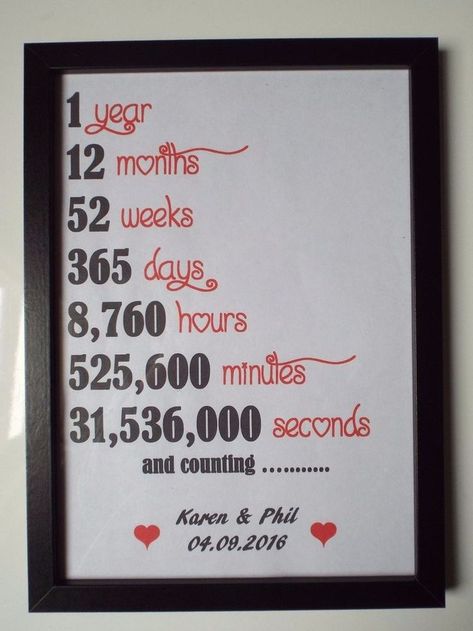 1 year
12 months
52 weeks
365 days
8,760 hours
525,600 minutes
31,536,000 seconds
and counting ............
Karen & Phil
04.09.2016